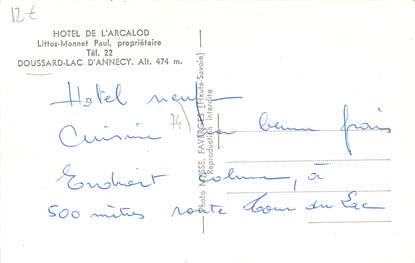 12€
HOTEL DE L'ARCALOD
Littoz-Monnet Paul, propriétaire
Tél. 22
DOUSSARD-LAC D'ANNECY. Alt. 474 m.
Hotel neuf
74
Cuisine au beurre frais
Endroit calme, à
500 mètres route Tour du Lac
Photo MOSSE, FAVERGES (Haute-Savoie)
Reproduction interdite